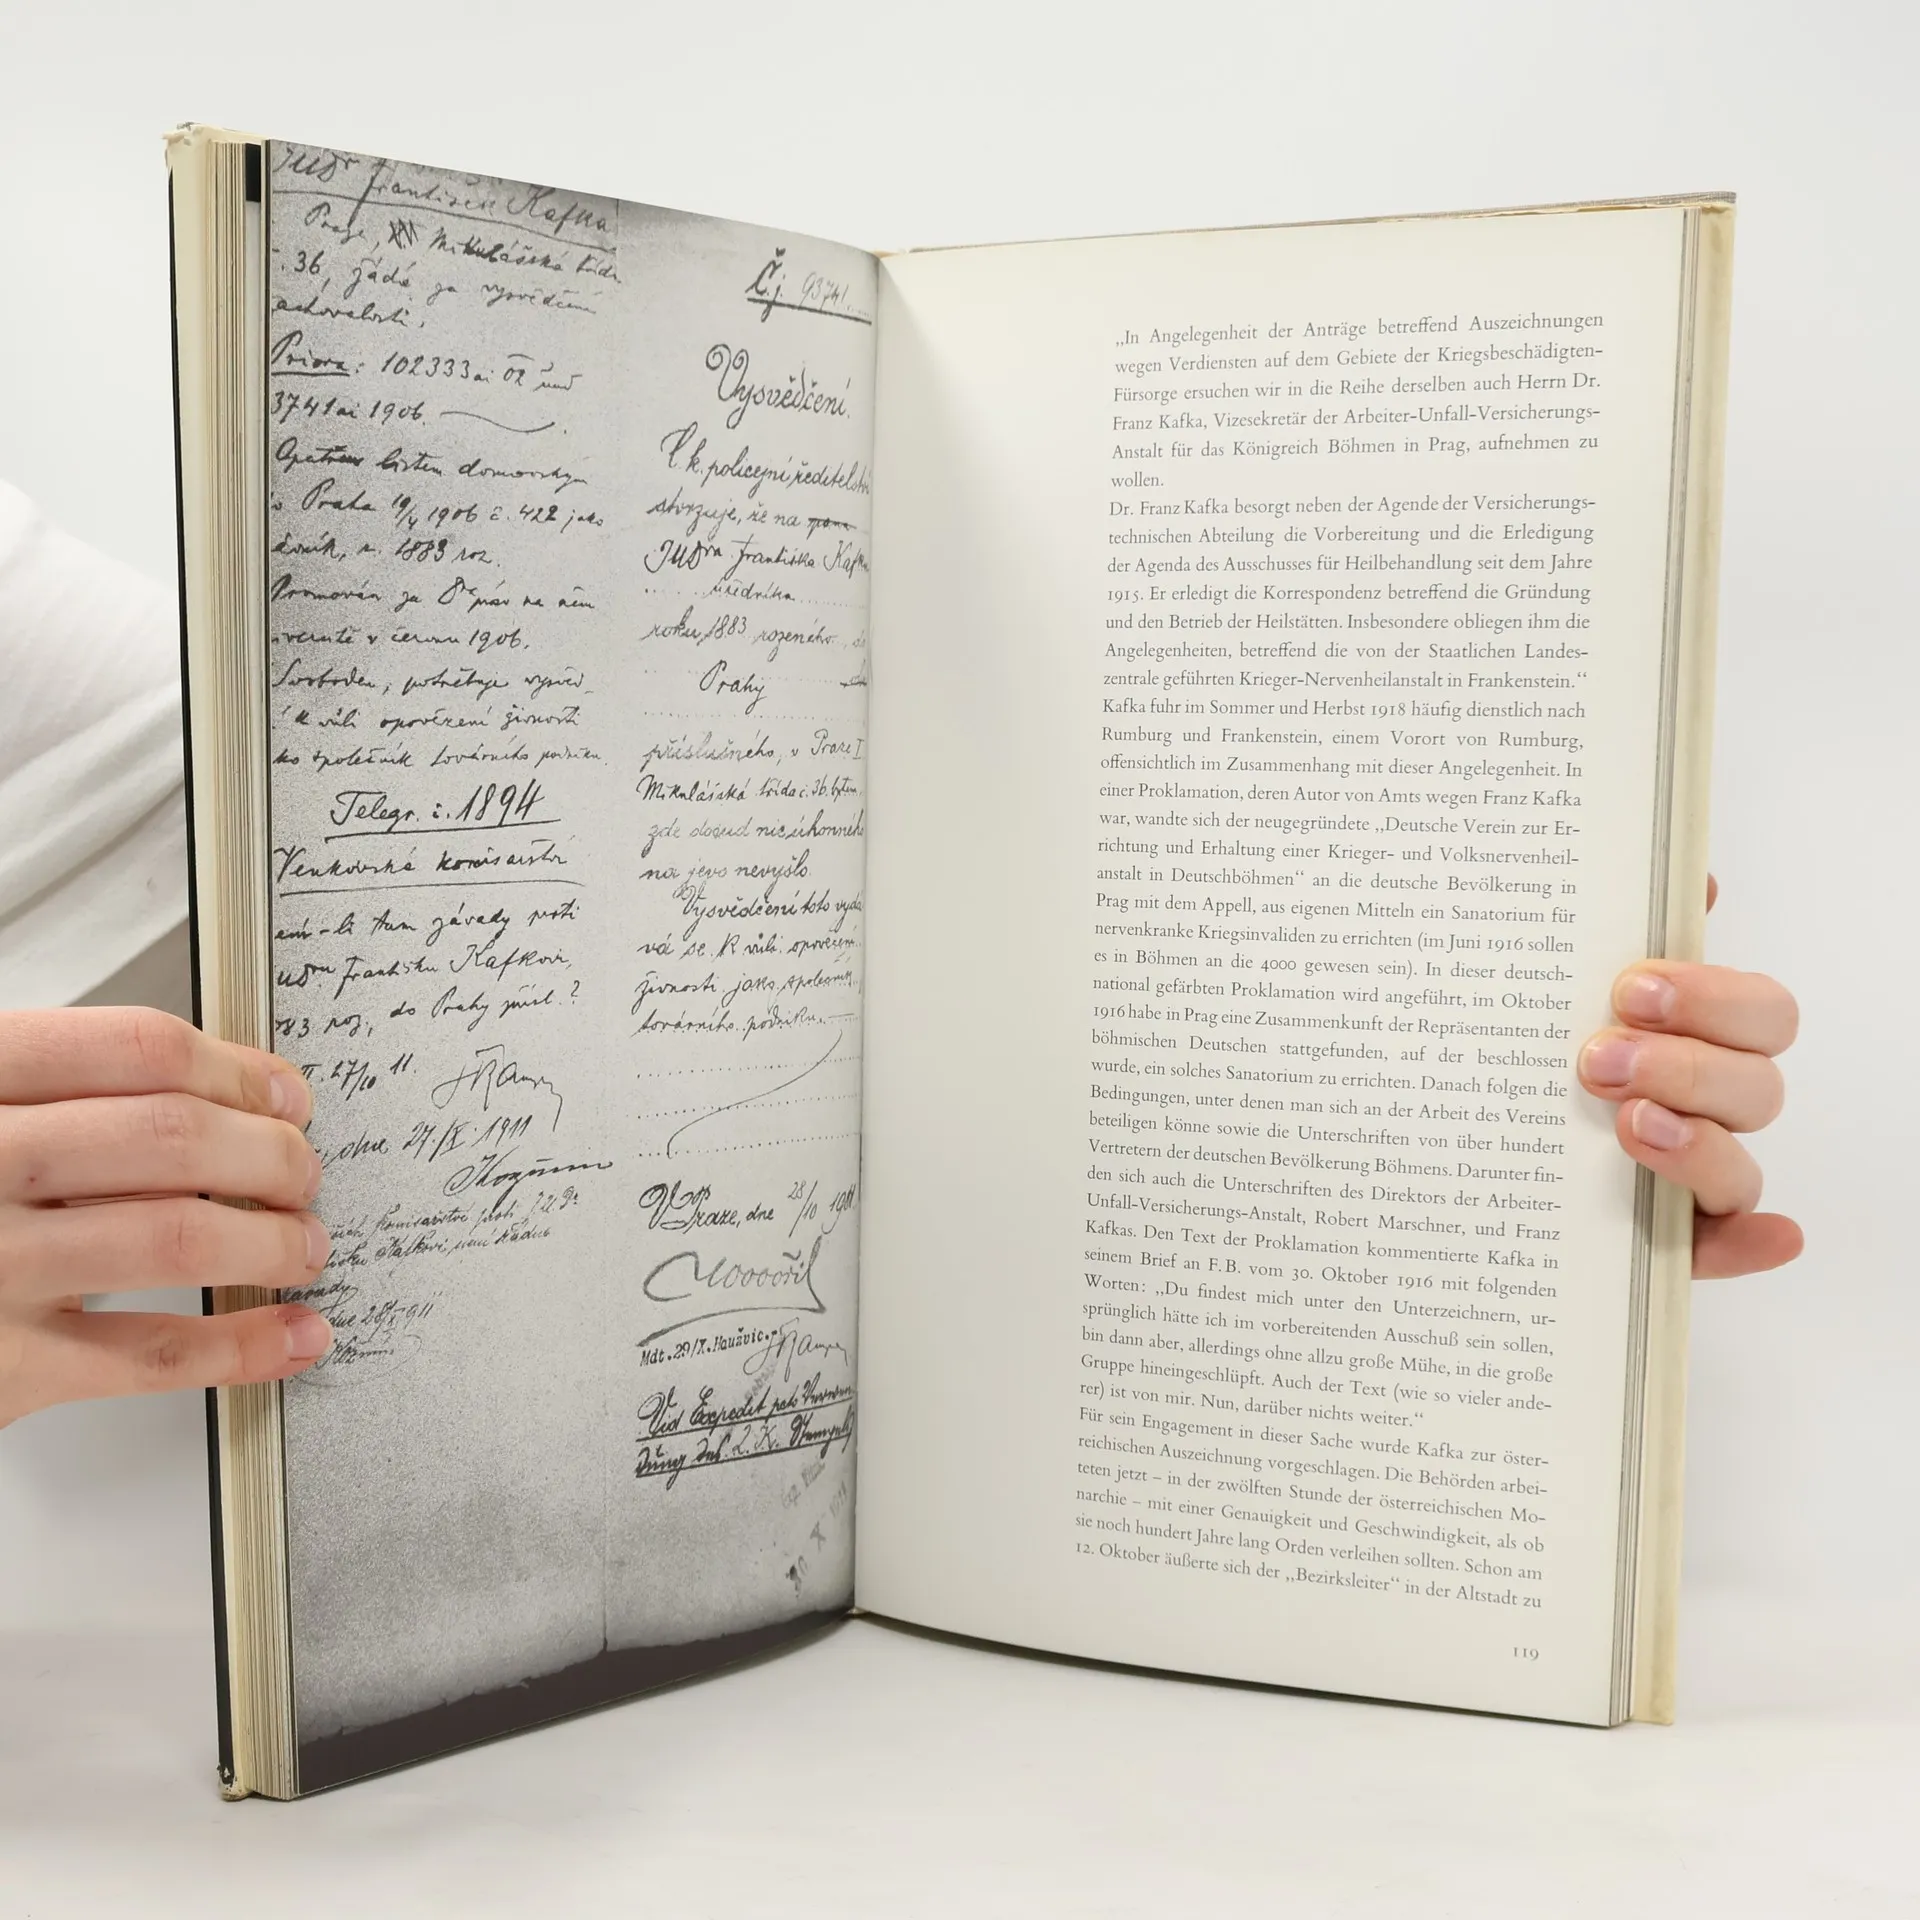 JUDr
František Kafka
Praze, Mikulášská
36, žádá za vysvědčení
Priora: 102333 ai 02 und
3741 ai 1906.
listem domovským
Praha 19/4 1906 č. 422 jako
r. 1883 roz.
v červnu 1906.
Svoboden, potřebuje
k vůli opovězení živnosti
společník továrního podniku.
Telegr. č. 1894
Venkovské komisařství
tam závady proti
Františku Kafkovi,
do Prahy přísl.?
27/10 11.
dne 27./X. 1911
komisařství proti J.U.Dr
Kafkovi, není žádné
závady
dne 28/X 911
Č.j. 93741
Vysvědčení.
C. k. policejní ředitelství
stvrzuje, že na pana
JUDra Františka Kafku
úředníka
roku 1883 rozeného, do
Prahy
příslušného, v Praze I
Mikulášská třída č. 36. bytem,
zde dosud nic úhonného
na jevo nevyšlo.
Vysvědčení toto vydá-
vá se k vůli opovězení
živnosti jako společník
továrního podniku.
V Praze, dne 28/10 1911.
Mdt. 29/X. Houžvic.
Vid Expedit
X 1911
„In Angelegenheit der Anträge betreffend Auszeichnungen
wegen Verdiensten auf dem Gebiete der Kriegsbeschädigten-
Fürsorge ersuchen wir in die Reihe derselben auch Herrn Dr.
Franz Kafka, Vizesekretär der Arbeiter-Unfall-Versicherungs-
Anstalt für das Königreich Böhmen in Prag, aufnehmen zu
wollen.
Dr. Franz Kafka besorgt neben der Agende der Versicherungs-
technischen Abteilung die Vorbereitung und die Erledigung
der Agenda des Ausschusses für Heilbehandlung seit dem Jahre
1915. Er erledigt die Korrespondenz betreffend die Gründung
und den Betrieb der Heilstätten. Insbesondere obliegen ihm die
Angelegenheiten, betreffend die von der Staatlichen Landes-
zentrale geführten Krieger-Nervenheilanstalt in Frankenstein.“
Kafka fuhr im Sommer und Herbst 1918 häufig dienstlich nach
Rumburg und Frankenstein, einem Vorort von Rumburg,
offensichtlich im Zusammenhang mit dieser Angelegenheit. In
einer Proklamation, deren Autor von Amts wegen Franz Kafka
war, wandte sich der neugegründete „Deutsche Verein zur Er-
richtung und Erhaltung einer Krieger- und Volksnervenheil-
anstalt in Deutschböhmen“ an die deutsche Bevölkerung in
Prag mit dem Appell, aus eigenen Mitteln ein Sanatorium für
nervenkranke Kriegsinvaliden zu errichten (im Juni 1916 sollen
es in Böhmen an die 4000 gewesen sein). In dieser deutsch-
national gefärbten Proklamation wird angeführt, im Oktober
1916 habe in Prag eine Zusammenkunft der Repräsentanten der
böhmischen Deutschen stattgefunden, auf der beschlossen
wurde, ein solches Sanatorium zu errichten. Danach folgen die
Bedingungen, unter denen man sich an der Arbeit des Vereins
beteiligen könne sowie die Unterschriften von über hundert
Vertretern der deutschen Bevölkerung Böhmens. Darunter fin-
den sich auch die Unterschriften des Direktors der Arbeiter-
Unfall-Versicherungs-Anstalt, Robert Marschner, und Franz
Kafkas. Den Text der Proklamation kommentierte Kafka in
seinem Brief an F. B. vom 30. Oktober 1916 mit folgenden
Worten: „Du findest mich unter den Unterzeichnern, ur-
sprünglich hätte ich im vorbereitenden Ausschuß sein sollen,
bin dann aber, allerdings ohne allzu große Mühe, in die große
Gruppe hineingeschlüpft. Auch der Text (wie so vieler ande-
rer) ist von mir. Nun, darüber nichts weiter.“
Für sein Engagement in dieser Sache wurde Kafka zur öster-
reichischen Auszeichnung vorgeschlagen. Die Behörden arbei-
teten jetzt – in der zwölften Stunde der österreichischen Mo-
narchie – mit einer Genauigkeit und Geschwindigkeit, als ob
sie noch hundert Jahre lang Orden verleihen sollten. Schon am
12. Oktober äußerte sich der „Bezirksleiter“ in der Altstadt zu
119